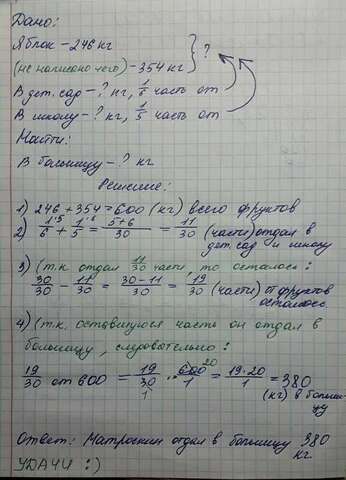 Дано:
Яблок - 246 кг
(не написано чего) - 354 кг } ?
В дет. сад - ? кг, 1/6 часть от
В школу - ? кг, 1/5 часть от
Найти:
В больницу - ? кг
Решение:
1) 246 + 354 = 600 (кг) всего фруктов
2) 1·5/6 + 1·6/5 = 5+6/30 = 11/30 (части) отдал в
дет. сад и школу
3) (т.к. отдал 11/30 части, то осталось:
30/30 - 11/30 = 30-11/30 = 19/30 (части) от фруктов
осталось.
4) (т.к. оставшуюся часть он отдал в
больницу, следовательно:
19/30 от 600 = 19/30 · 600/1 = 19·20/1 = 380
(кг) в больни-
цу
Ответ: Матроскин отдал в больницу 380
кг.
УДАЧИ :)